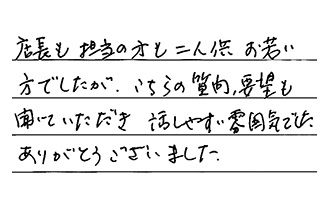 店長も担当の方も二人供 お若い
方でしたが、こちらの質問、要望も
聞いていただき 話しやすい雰囲気でした
ありがとうございました.